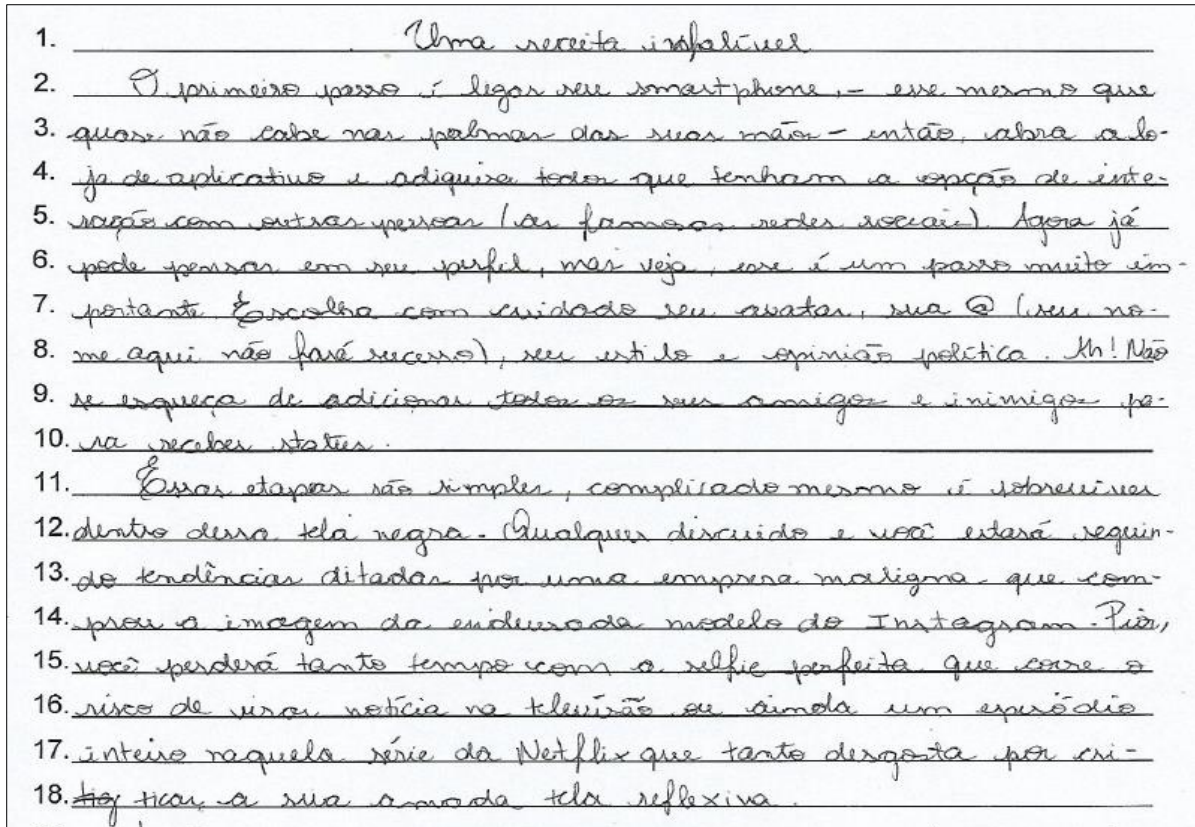 1. Uma receita infalível
2. O primeiro passo é legar seu smartphone, - esse mesmo que
3. quase não cabe nas palmas das suas mãos - então, abra a lo-
4. ja de aplicativo e adiquira todos que tenham a opção de inte-
5. ração com outras pessoas (as famosas redes sociais). Agora já
6. pode pensar em seu perfil, mas veja, esse é um passo muito im-
7. portante. Escolha com cuidado seu avatar, sua @ (seu no-
8. me aqui não fará sucesso), seu estilo e opinião política. Ah! Não
9. se esqueça de adicionar todos os seus amigos e inimigos pa-
10. ra receber status.
11. Essas etapas são simples, complicado mesmo é sobreviver
12. dentro dessa tela negra. Qualquer discuido e você estará seguin-
13. do tendências ditadas por uma empresa maligna que com-
14. prou a imagem da endeusada modelo do Instagram. Pior,
15. você perderá tanto tempo com a selfie perfeita que corre o
16. risco de virar notícia na televisão ou ainda um episódio
17. inteiro naquela série da Netflix que tanto desgosta por cri-
18. ticar, a sua amada tela reflexiva.